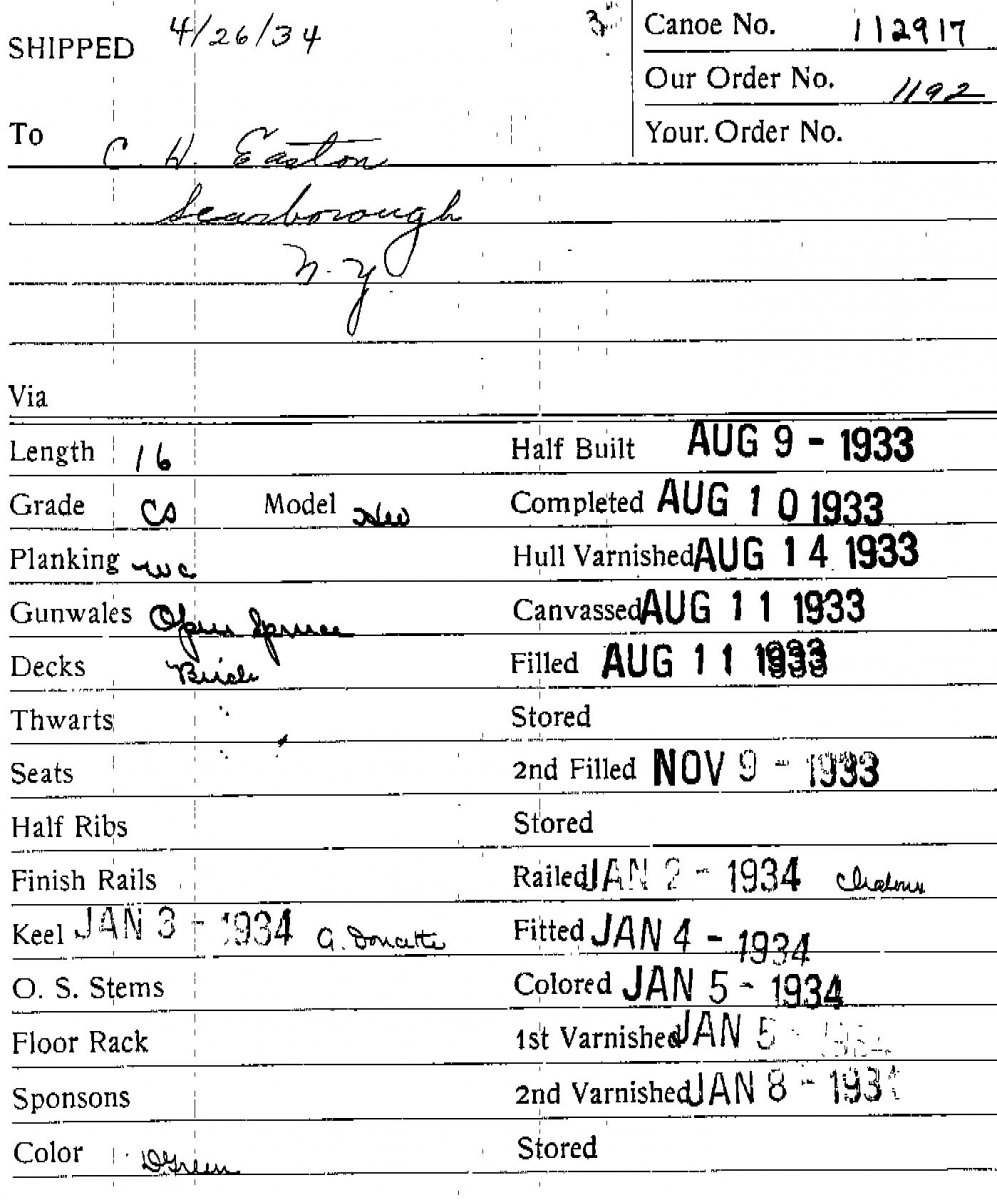 SHIPPED 4/26/34
Canoe No. 112917
Our Order No. 1192
To C. H. Easton
Your Order No.
Scarborough
N.Y.
Via
Length 16 Half Built AUG 9 - 1933
Grade CS Model Completed AUG 10 1933
Planking WC Hull Varnished AUG 14 1933
Gunwales Open Spruce Canvassed AUG 11 1933
Decks Birch Filled AUG 11 1933
Thwarts Stored
Seats 2nd Filled NOV 9 - 1933
Half Ribs Stored
Finish Rails Railed JAN 2 - 1934
Keel JAN 3 - 1934 Fitted JAN 4 - 1934
O. S. Stems Colored JAN 5 - 1934
Floor Rack 1st Varnished JAN 5 - 1934
Sponsons 2nd Varnished JAN 8 - 1934
Color D Green Stored